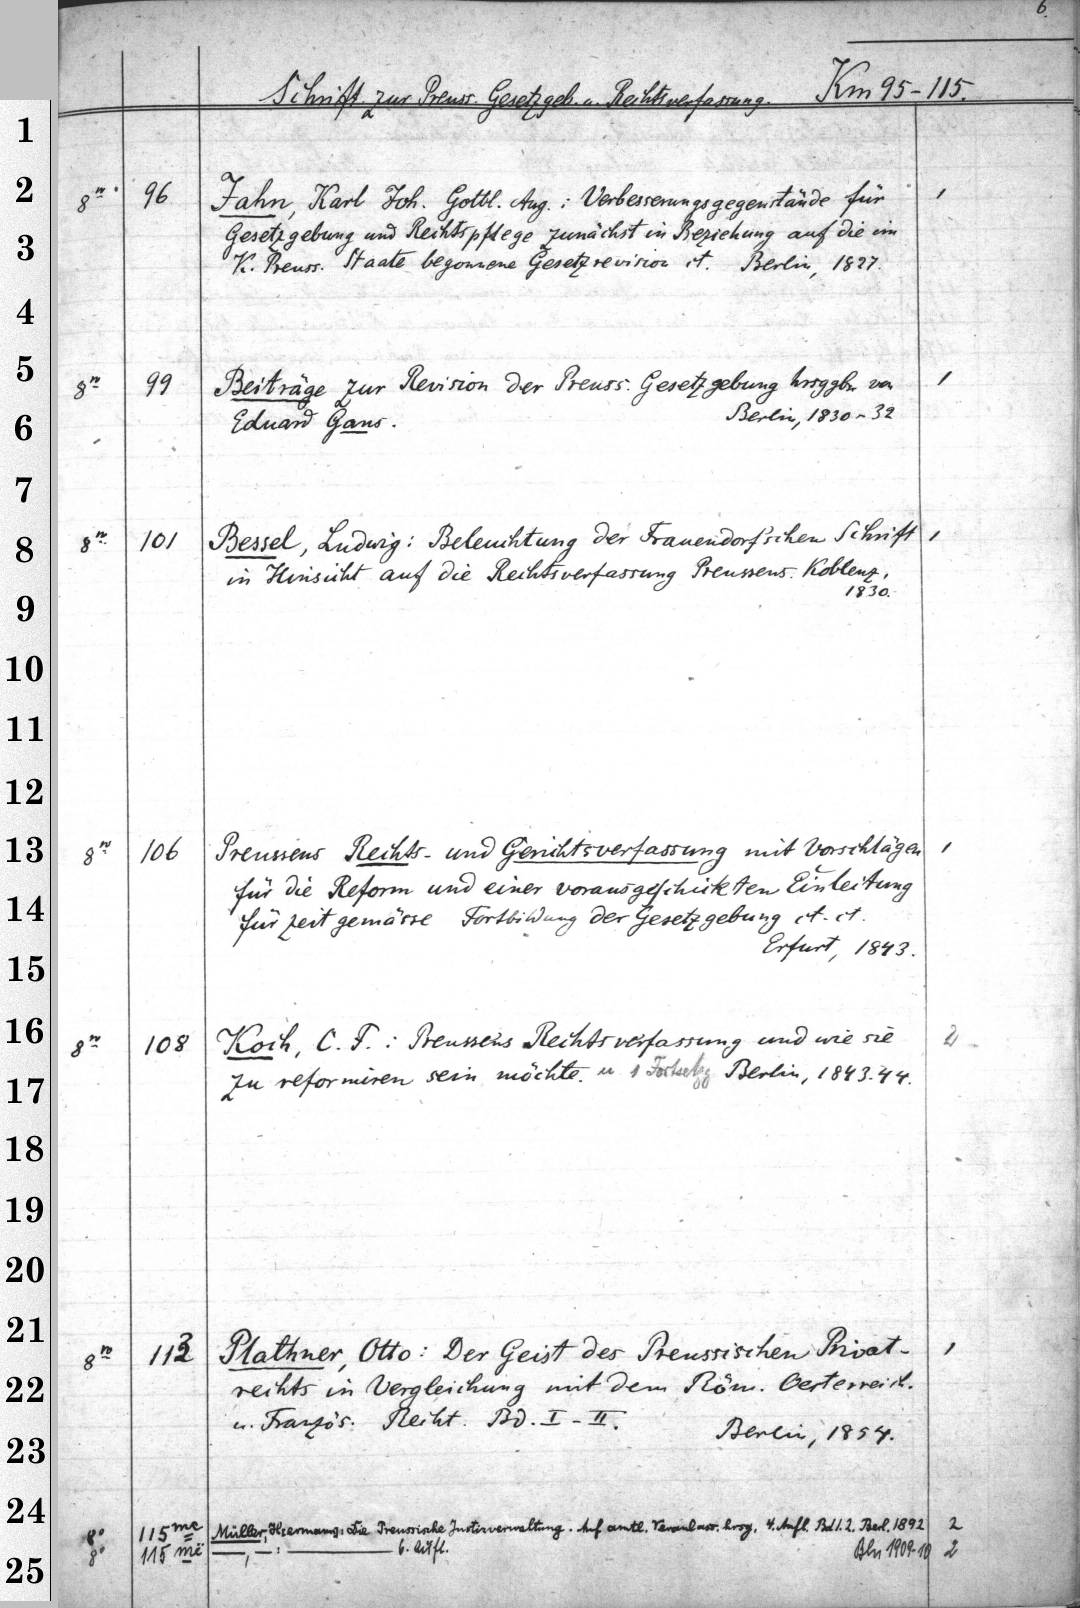 6.
Schrift. zur Preuss. Gesetzgeb. u. Rechtsverfassung. Km 95-115.
1
2
3
4
5
6
7
8
9
10
11
12
13
14
15
16
17
18
19
20
21
22
23
24
25
8n. 96 Jahn, Karl Joh. Gottl. Aug.: Verbesserungsgegenstände für 1
Gesetzgebung und Rechtspflege zunächst in Beziehung auf die im
K. Preuss. Staate begonnene Gesetzrevision ct. Berlin, 1827.
8n 99 Beiträge zur Revision der Preuss. Gesetzgebung hrsggbn von 1
Eduard Gans. Berlin, 1830-32
8n. 101 Bessel, Ludwig: Beleuchtung der Frauendorf'schen Schrift 1
in Hinsicht auf die Rechtsverfassung Preussens. Koblenz,
1830.
8n. 106 Preussens Rechts- und Gerichtsverfassung mit Vorschlägen 1
für die Reform und einer vorausgeschickten Einleitung
für zeitgemässe Fortbildung der Gesetzgebung ct. ct.
Erfurt, 1843.
8n 108 Koch, C. F.: Preussens Rechtsverfassung und wie sie 2
zu reformiren sein möchte. u 1 Fortsetzg Berlin, 1843.44.
8n Plathner, Otto: Der Geist des Preussischen Privat- 1
rechts in Vergleichung mit dem Röm. Oesterreich.
u. Französ. Recht. Bd. I-II. Berlin, 1854.
8° 115mc Müller, Hermann: Die Preussische Justizverwaltung. Auf amtl. Veranlass. hrsg. 4. Aufl. Bd 1.2. Berl. 1892 2
8° 115 më —, —: — 6. Aufl. Bln 1909-10 2